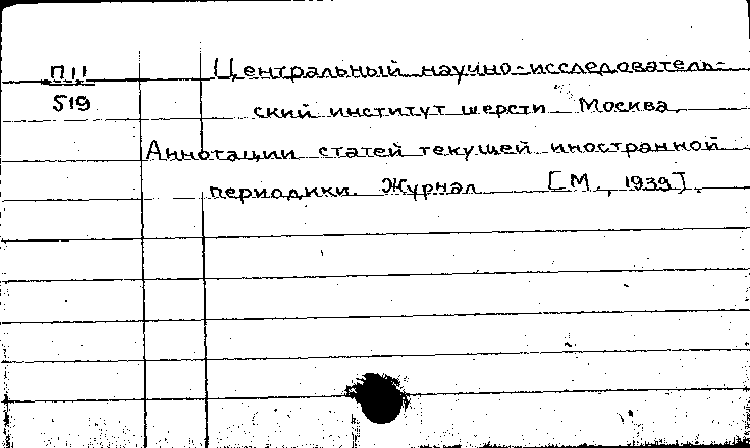 П11
519
Центральный научно-исследователь-
ский институт шерсти Москва.
Аннотации статей текущей иностранной
периодики. Журнал [М., 1939].